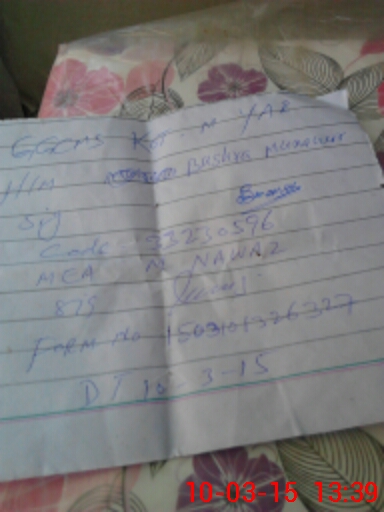 GGCMS Kot. M YAR
H/M Bushra Munawar
Sig
Code 33230596
MEA M NAWAZ
875
Form No 1503101326327
DT 10-3-15
10-03-15 13:39